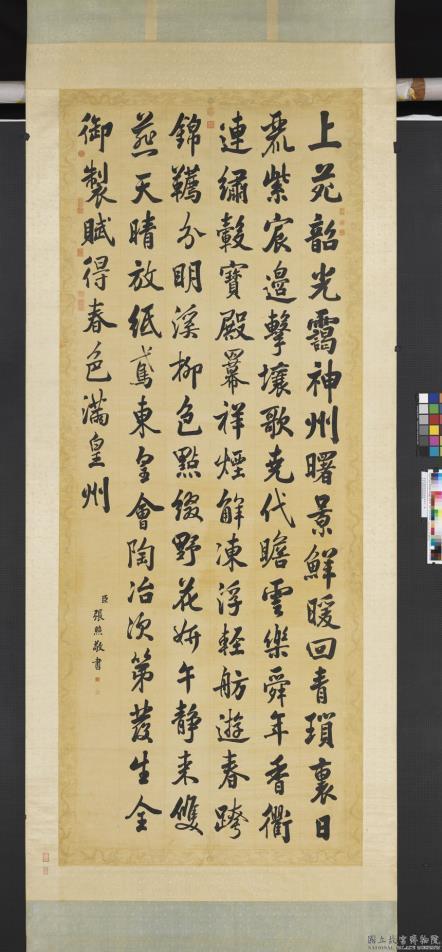 上苑韶光靄神州曙景鮮暖回青瑣裏日
麗紫宸邊擊壤歌堯代瞻雲樂舜年香衢
連繡轂寶殿羃祥煙解凍浮輕舫遊春跨
錦韉分明溪柳色點綴野花妍午靜來雙
燕天晴放紙鳶東皇會陶冶次第發生全
御製賦得春色滿皇州
臣張照敬書
國立故宮博物院